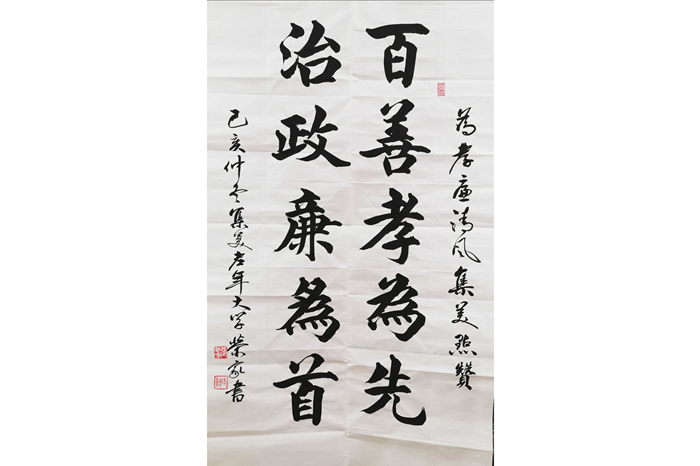 為孝廉清风集美点贊
百善孝為先
治政廉為首
己亥仲冬集美老年大学榮家書